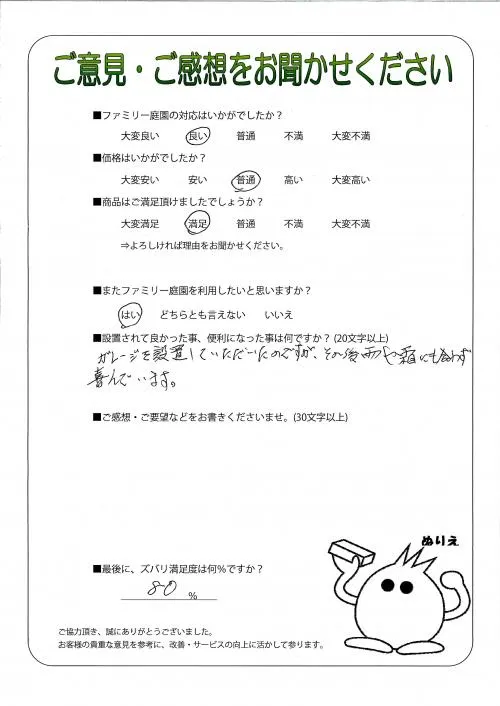 ご意見・ご感想をお聞かせください
■ファミリー庭園の対応はいかがでしたか？
大変良い 良い 普通 不満 大変不満
■価格はいかがでしたか？
大変安い 安い 普通 高い 大変高い
■商品はご満足頂けましたでしょうか？
大変満足 満足 普通 不満 大変不満
⇒よろしければ理由をお聞かせください。
■またファミリー庭園を利用したいと思いますか？
はい どちらとも言えない いいえ
■設置されて良かった事、便利になった事は何ですか？(20文字以上)
ガレージを設置していただいたのですが、その後雨や霜にも合わず
喜んでいます。
■ご感想・ご要望などをお書きくださいませ。(30文字以上)
ぬりえ
■最後に、ズバリ満足度は何％ですか？
80 ％
ご協力頂き、誠にありがとうございました。
お客様の貴重な意見を参考に、改善・サービスの向上に活かして参ります。